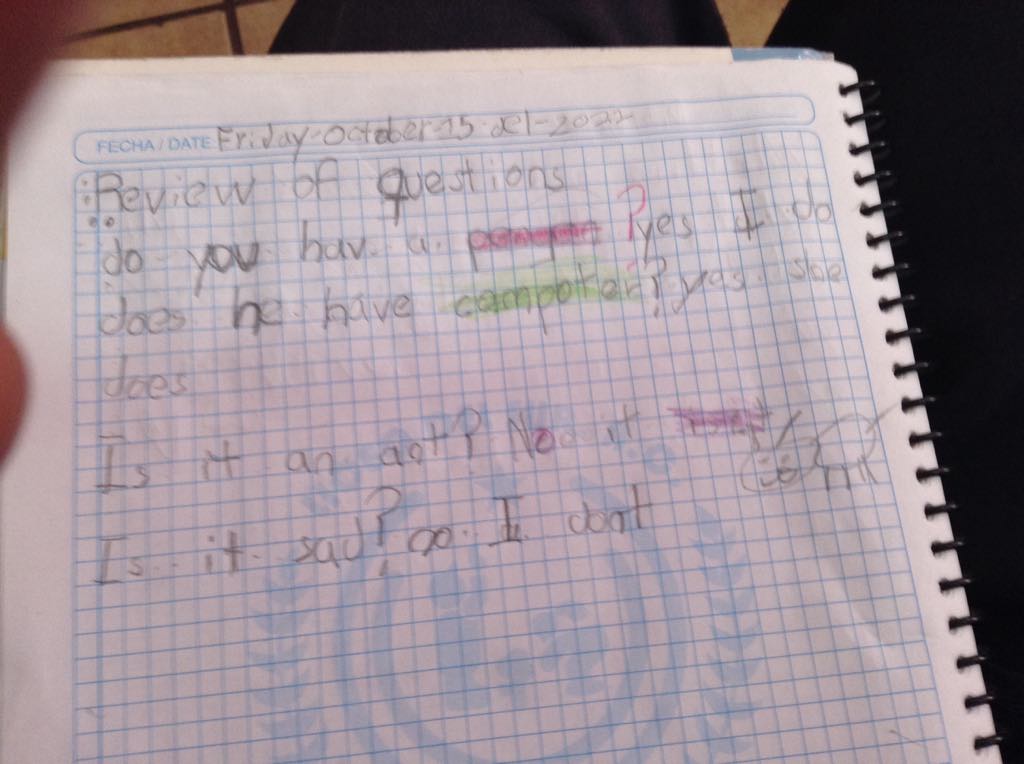 FECHA/DATE Friday-October-15-del-2022
Review of questions
do you hav a ? yes I do
does he have campoter? yes she
does
Is it an ant? No it
Is it sad? no I dont